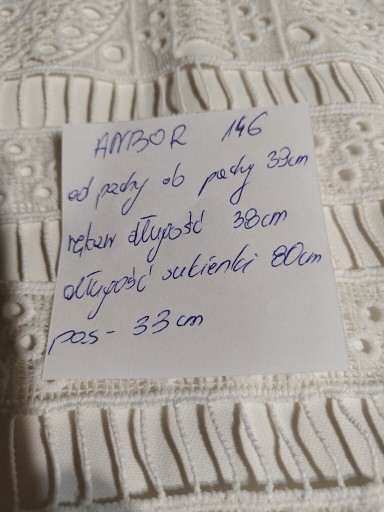 AMBOR 146
od pachy do pachy 39cm
rękaw długość 38cm
długość sukienki 80cm
pas - 33cm